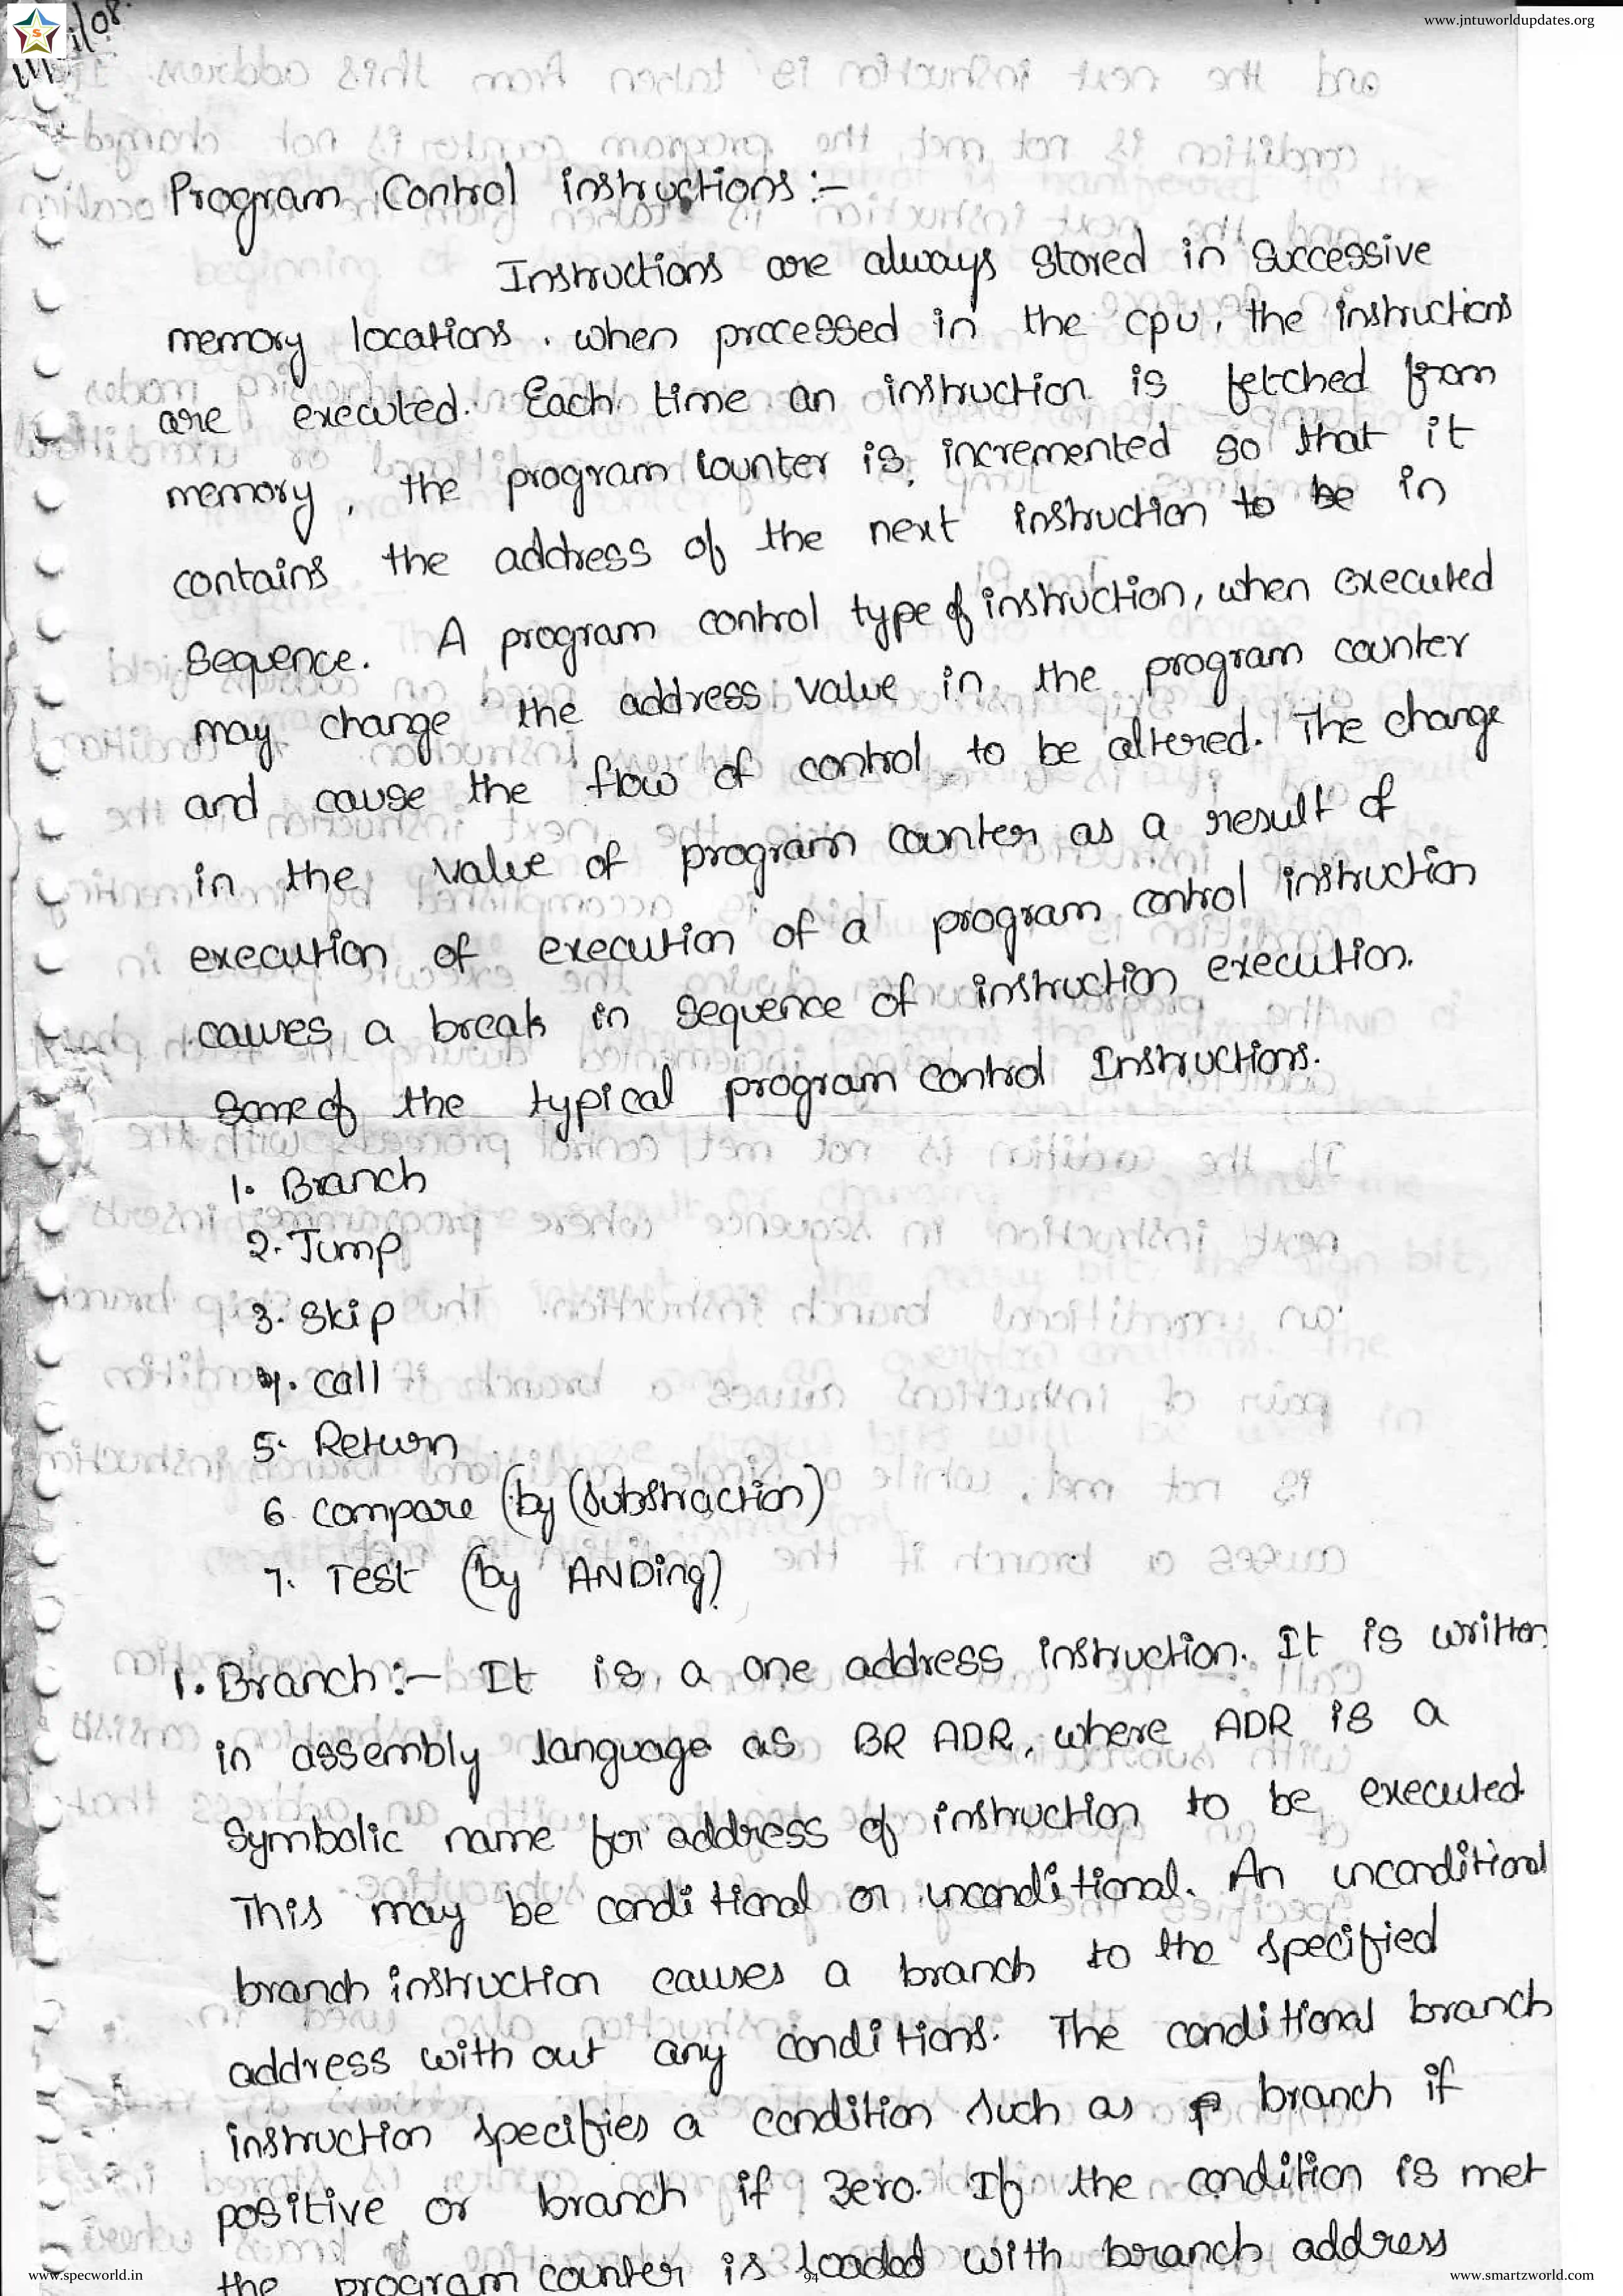 www.jntuworldupdates.org
Program Control instructions :-
Instructions are always stored in successive
memory locations. when processed in the cpu, the instructions
are executed. Each time an instruction is fetched from
memory, the program counter is incremented so that it
contains the address of the next instruction to be in
sequence. A program control type of instruction, when executed
may change the address value in the program counter
and cause the flow of control to be altered. The change
in the value of program counter as a result of
execution of execution of a program control instruction
causes a break in sequence of instruction execution.
Some of the typical program control Instructions.
1. Branch
2. Jump
3. Skip
4. call
5. Return
6. compare (by (substraction)
7. Test (by ANDing)
1. Branch :- It is a one address instruction. It is written
in assembly language as BR ADR, where ADR is a
symbolic name for address of instruction to be executed
This may be conditional or unconditional. An unconditional
branch instruction causes a branch to the specified
address with out any conditions. The conditional branch
instruction specifies a condition such as branch if
positive or branch if zero. If the condition is met
the program counter is loaded with branch address
www.specworld.in
94
www.smartzworld.com